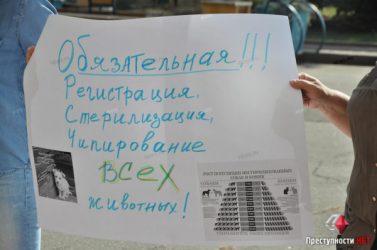 Обязательная!!!
Регистрация,
Стерилизация,
Чипирование
всех
животных!
Преступности.НЕТ